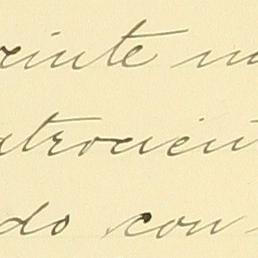 reinte m
atrocient
do con